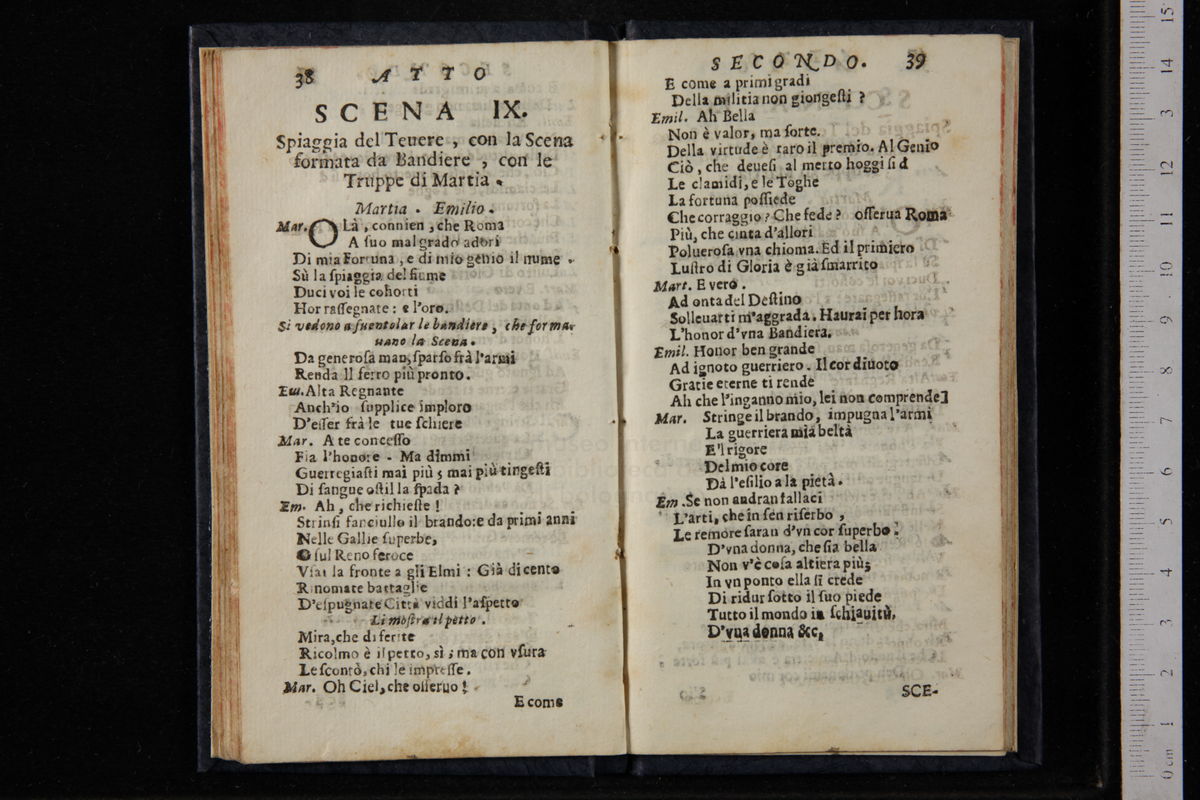 38 ATTO
SCENA IX.
Spiaggia del Teuere, con la Scena
formata da Bandiere, con le
Truppe di Martia.
Martia. Emilio.
Mar. OLà, connien, che Roma
A ſuo mal grado adori
Di mia Fortuna, e di mio genio il nume.
Sù la ſpiaggia del fiume
Duci voi le cohorti
Hor raſſegnate: e l'oro.
Si vedono a ſuentolar le bandiere, che forma-
uano la Scena.
Da generoſa man, ſparſo frà l'armi
Renda Il ferro più pronto.
Em. Alta Regnante
Anch'io ſupplice imploro
D'eſſer frà le tue ſchiere
Mar. A te conceſſo
Fia l'honore - Ma dimmi
Guerregiaſti mai più; mai più tingeſti
Di ſangue oſtil la ſpada?
Em. Ah, che richieſte!
Strinſi fanciullo il brando: e da primi anni
Nelle Gallie ſuperbe,
O ſul Reno feroce
Vſai la fronte a gli Elmi: Già di cento
Rinomate battaglie
D'eſpugnate Città viddi l'aſpetto
Li moſtra il petto.
Mira, che di ferite
Ricolmo è il petto, sì; ma con vſura
Le ſcontò, chi le impreſſe.
Mar. Oh Ciel, che oſſeruo!
E come
SECONDO. 39
E come a primi gradi
Della militia non giongeſti?
Emil. Ah Bella
Non è valor, ma ſorte.
Della virtude è raro il premio. Al Genio
Ciò, che deueſi al merto hoggi ſi d
Le clamidi, e le Toghe
La fortuna poſſiede
Che corraggio? Che fede? oſſerua Roma
Più, che cinta d'allori
Polueroſa vna chioma. Ed il primiero
Luſtro di Gloria è già ſmarrito
Mart. E vero.
Ad onta del Deſtino
Solleuarti m'aggrada. Haurai per hora
L'honor d'vna Bandiera.
Emil. Honor ben grande
Ad ignoto guerriero. Il cor diuoto
Gratie eterne ti rende
Ah che l'inganno mio, lei non comprende]
Mar. Stringe il brando, impugna l'armi
La guerriera mia beltà
E'l rigore
Del mio core
Dà l'eſilio a la pietà.
Em. Se non andran fallaci
L'arti, che in ſen riſerbo,
Le remore ſaran d'vn cor ſuperbo:
D'vna donna, che ſia bella
Non v'è coſa altiera più;
In vn ponto ella ſi crede
Di ridur ſotto il ſuo piede
Tutto il mondo in ſchiauitù,
D'vna donna &c,
SCE-